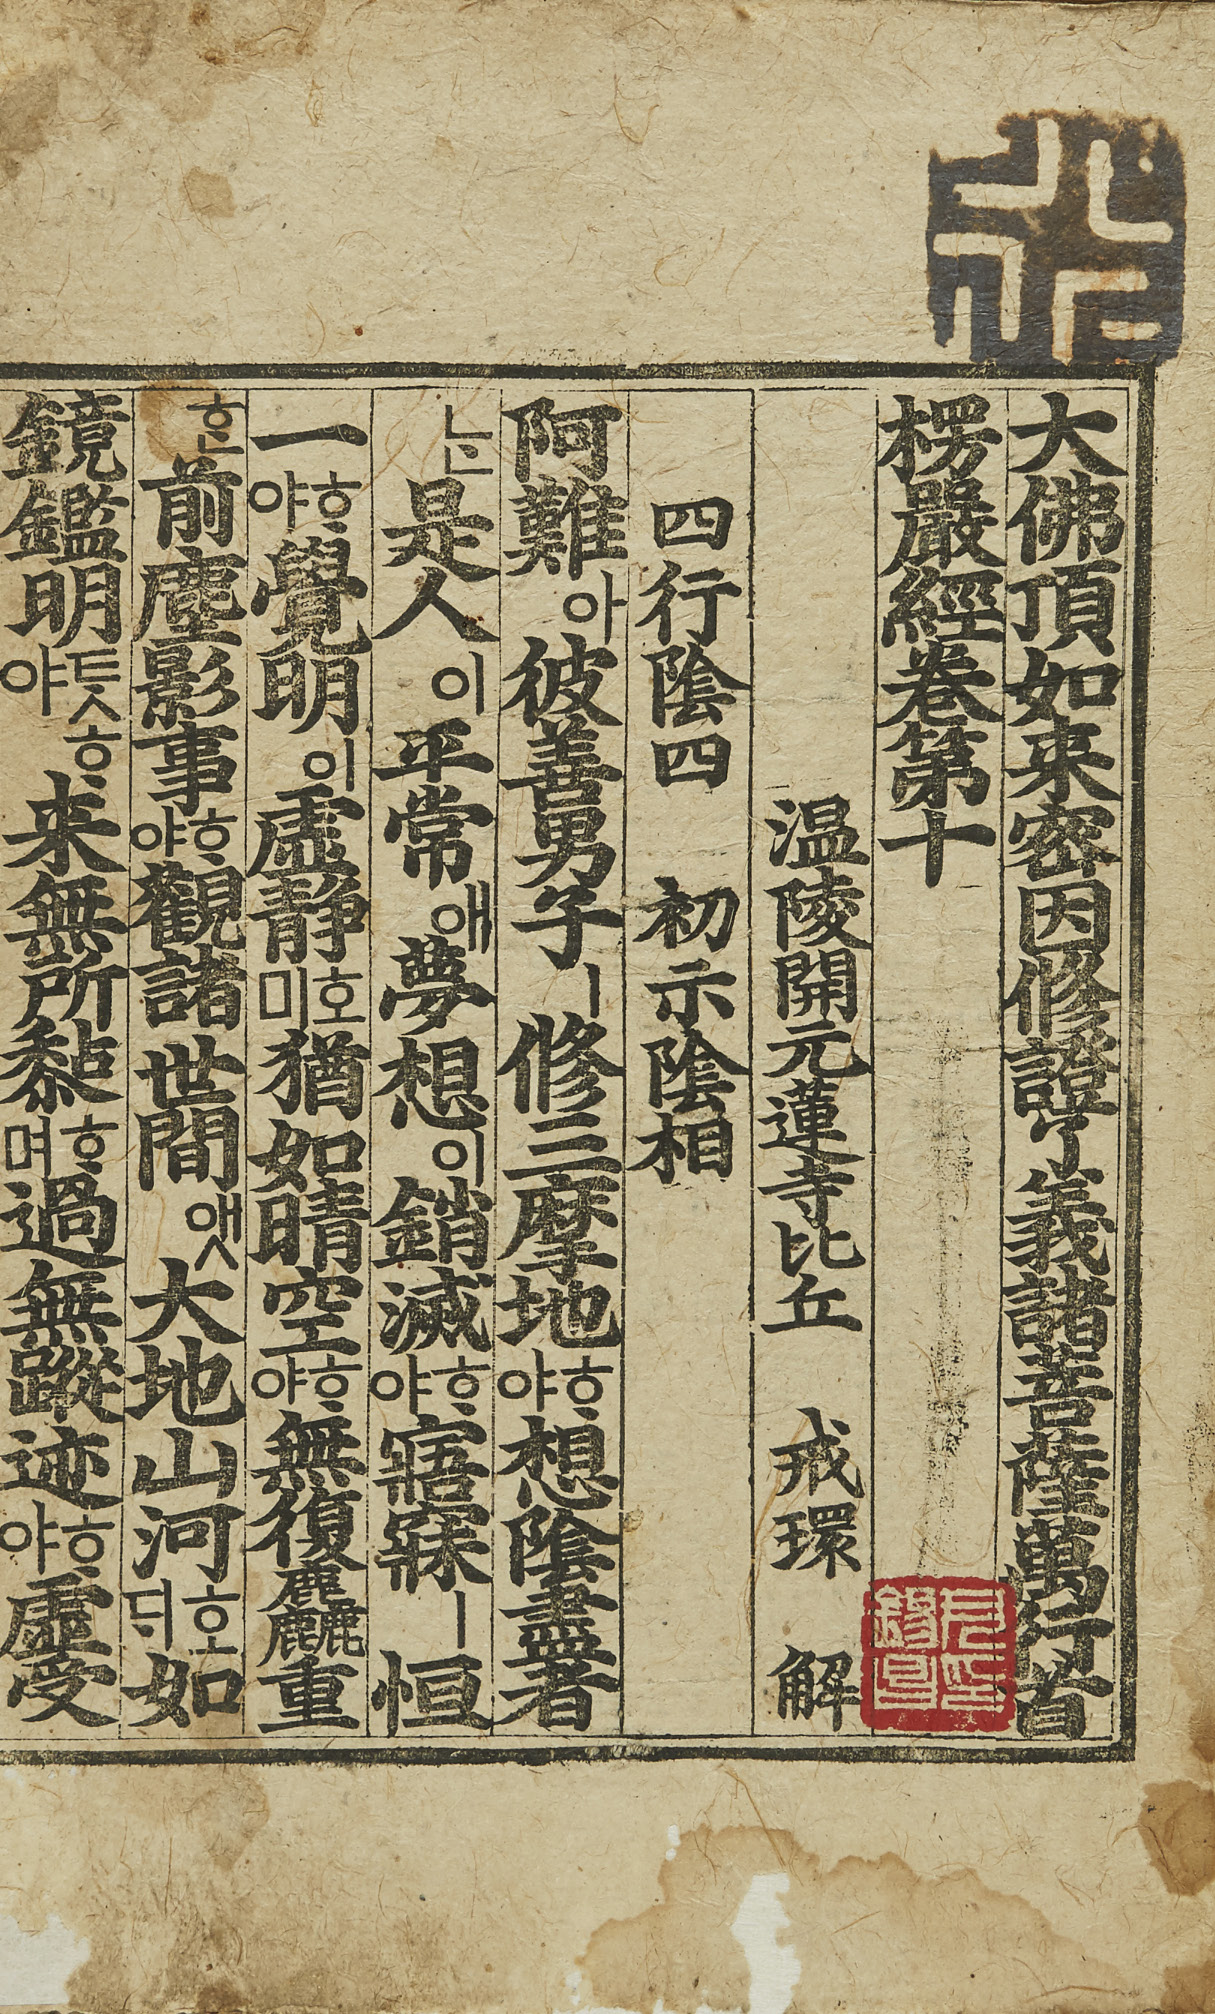 大佛頂如来密因修證了義諸菩薩萬行首
楞嚴經卷第十
温陵開元蓮寺比丘 戒環 解
四行陰四 初示陰相
阿難아彼善男子ㅣ修三摩地ᄒᆞ야想陰盡者
ᄂᆞᆫ是人이平常애夢想이銷滅ᄒᆞ야寤寐ㅣ恒
一ᄒᆞ야覺明이虛静호미猶如晴空ᄒᆞ야無復麤重
ᄒᆞᆫ前塵影事ᄒᆞ야觀諸世間앳大地山河호ᄃᆡ如
鏡鑑明듯ᄒᆞ야来無所黏ᄒᆞ며過無蹤迹ᄒᆞ야虛受